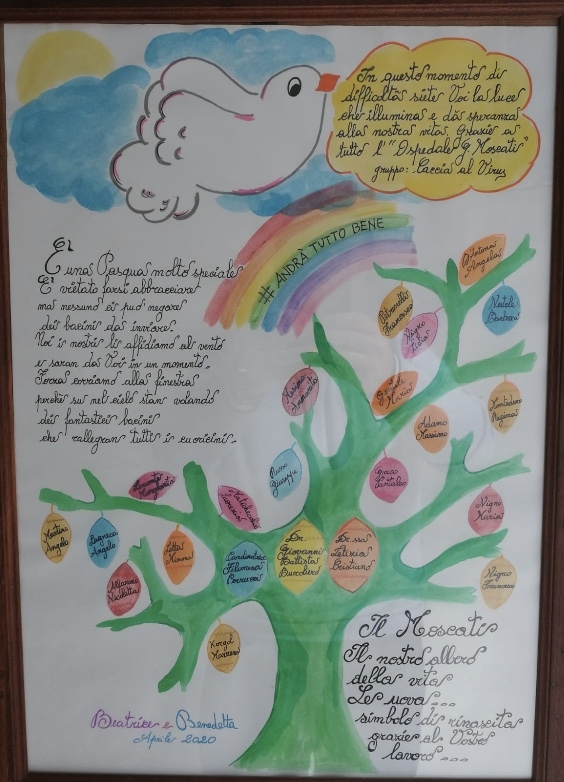 In questo momento di
difficoltà siete Voi la luce
che illumina e dà speranza
alla nostra vita. Grazie a
tutto l'"Ospedale G. Moscati"
gruppo: Caccia al Virus
# ANDRÀ TUTTO BENE
È
È una Pasqua molto speciale
È vietato farsi abbracciare
ma nessuno ci può negare
dei bacini da inviare.
Noi i nostri li affidiamo al vento
e saran da Voi in un momento.
Forza corriamo alla finestra
perché su nel cielo stan volando
dei fantastici bacini
che rallegran tutti i cuoricini.
Angela
Petronelli
Francesco
Nigro
Barbara
Maria
Adamo
Massimo
Russo
Giuseppe
Greco
Nigro
Maria
Nigro
Francesco
Martino
Angelo
Angelo
Margherita
Nicoletta
Filomena
Dr.
Giovanni
Battista
Buccoliero
Dr.ssa
Letizia
Cristiano
Il Moscati
Il nostro albero
della vita
Le uova...
simbolo di rinascita
grazie al Vostro
lavoro...
Beatrice e Benedetta
Aprile 2020